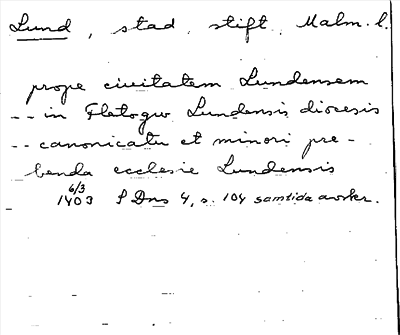 Lund, stad, stift, Malm. l.
prope ciuitatem Lundensem
-- in Fletogw Lundensis diocesis
-- canonicatu et minori pre-
benda ecclesie Lundensis
6/3
1403 SDns 4, s. 104 samtida avskr.